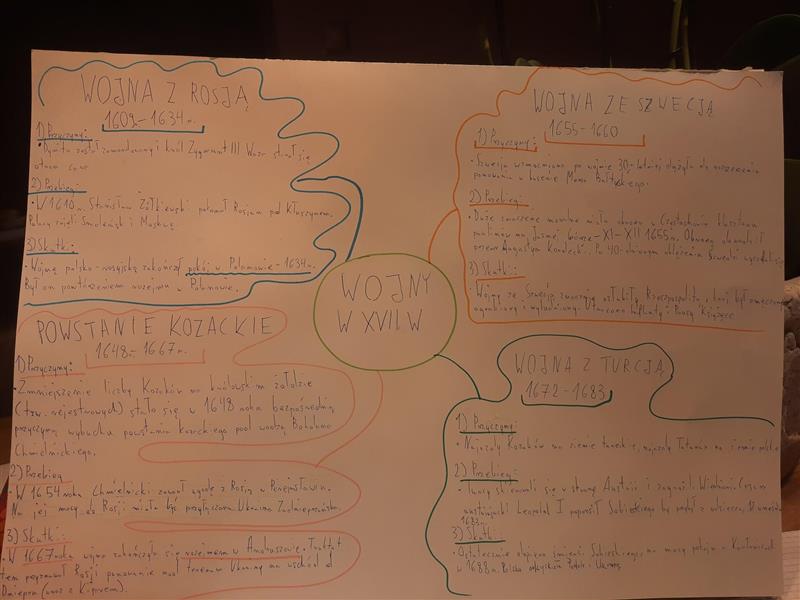 WOJNA Z ROSJĄ
1609-1634r.
1) Przyczyny:
• Dymitr został zamordowany i król Zygmunt III Waza stał się
2) Przebieg:
• W 1610r. Stanisław Żółkiewski pokonał Rosjan pod Kłuszynem.
Polacy zajęli Smoleńsk i Moskwę.
3) Skutki:
• Wojnę polsko-rosyjską zakończył pokój w Polanowie - 1634r.
Był on powtórzeniem rozejmu w
POWSTANIE KOZACKIE
1648r-1667r.
1) Przyczyny:
• Zmniejszenie liczby Kozaków na królewskim żołdzie
(tzw. rejestrowych) stało się w 1648 roku bezpośrednią
przyczyną wybuchu powstania kozackiego pod wodzą Bohdana
Chmielnickiego.
2) Przebieg
• W 1654 roku Chmielnicki zawarł ugodę z Rosją w Perejasławiu.
Na jej mocy do Rosji miała być przyłączona Ukraina
3) Skutki:
• W 1667 roku wojna zakończyła się rozejmem w Andruszowie. Traktat
ten przyznawał Rosji panowanie nad terenem Ukrainy na wschód od
Dniepru (wraz z Kijowem).
WOJNY
W XVII W
WOJNA ZE SZWECJĄ
1655-1660
1) Przyczyny:
• Szwecja wzmocniona po wojnie 30-letniej dążyła do
panowania w basenie Morza Bałtyckiego.
2) Przebieg:
• Duże znaczenie moralne miała obrona w Częstochowie klasztoru
paulinów na Jasnej Górze - XI-XII 1655r.
przeor Augustyn Kordecki. Po 40-dniowym oblężeniu Szwedzi
3) Skutki:
• Wojny ze Szwecją osłabiły Rzeczpospolitą, kraj był
Utracono Inflanty i Prusy Książęce
WOJNA Z TURCJĄ
1672-1683
1) Przyczyny:
• Najazdy Kozaków na ziemie tureckie, najazdy Tatarów na ziemie polskie
2) Przebieg:
• Turcy skierowali się w stronę Austrii i zagrozili Wiedniowi. Cesarz
austriacki Leopold I poprosił Sobieskiego by
1683r.
3) Skutki:
• Ostatecznie dopiero śmierć Sobieskiego, na mocy pokoju w Karłowicach
w Polska odzyskała Podole i Ukrainę